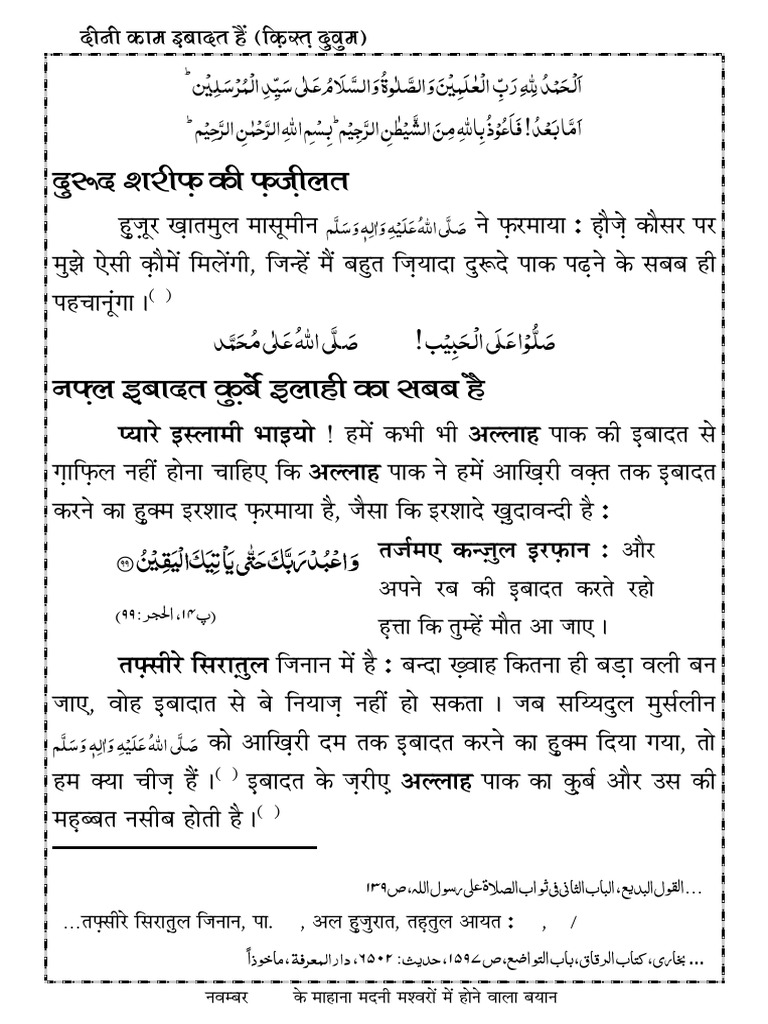 दीनी काम इ़बादत हैं (क़िस्त़ दुवुम)
اَلْحَمْدُ لِلّٰهِ رَبِّ الْعٰلَمِيْنَ وَالصَّلٰوةُ وَالسَّلَامُ عَلٰى سَيِّدِ الْمُرْسَلِيْنَ ؕ
اَمَّا بَعْدُ! فَاَعُوْذُ بِاللّٰهِ مِنَ الشَّيْطٰنِ الرَّجِيْمِ ؕ بِسْمِ اللّٰهِ الرَّحْمٰنِ الرَّحِيْمِ ؕ
दुरूद शरीफ़ की फ़ज़ीलत
हुज़ूर ख़ातमुल मासूमीन صَلَّى اللّٰهُ عَلَيْهِ وَاٰلِهٖ وَسَلَّم ने फ़रमाया : ह़ौज़े कौसर पर
मुझे ऐसी क़ौमें मिलेंगी, जिन्हें मैं बहुत ज़ियादा दुरूदे पाक पढ़ने के सबब ही
पहचानूंगा ।( )
صَلُّوْا عَلَى الْحَبِيْب! صَلَّى اللّٰهُ عَلٰى مُحَمَّد
नफ़्ल इ़बादत क़ुर्बे इलाही का सबब है
प्यारे इस्लामी भाइयो ! हमें कभी भी अल्लाह पाक की इ़बादत से
ग़ाफ़िल नहीं होना चाहिए कि अल्लाह पाक ने हमें आख़िरी वक़्त तक इ़बादत
करने का हु़क्म इरशाद फ़रमाया है, जैसा कि इरशादे ख़ुदावन्दी है :
وَاعْبُدْ رَبَّكَ حَتّٰى يَاْتِيَكَ الْيَقِيْنُ ﴿۹۹﴾
(پ۱۴، الحجر: ۹۹)
तर्जमए कन्ज़ुल इ़रफ़ान : और
अपने रब की इ़बादत करते रहो
ह़त्ता कि तुम्हें मौत आ जाए ।
तफ़्सीरे सिरात़ुल जिनान में है : बन्दा ख़्वाह कितना ही बड़ा वली बन
जाए, वोह इ़बादात से बे नियाज़ नहीं हो सकता । जब सय्यिदुल मुर्सलीन
صَلَّى اللّٰهُ عَلَيْهِ وَاٰلِهٖ وَسَلَّم को आख़िरी दम तक इ़बादत करने का हु़क्म दिया गया, तो
हम क्या चीज़ हैं ।( ) इ़बादत के ज़रीए़ अल्लाह पाक का क़ुर्ब और उस की
मह़ब्बत नसीब होती है ।( )
...القول البديع، الباب الثانى فى ثواب الصلاة على رسول الله، ص ۱۳۹
...तफ़्सीरे सिरात़ुल जिनान, पा. , अल हु़जुरात, तह़तुल आयत : , /
... بخارى، كتاب الرقاق، باب التواضع، ص ۱۵۹۷، حديث: ۶۵۰۲، دار المعرفة، ماخوذاً
नवम्बर के माहाना मदनी मश्वरों में होने वाला बयान